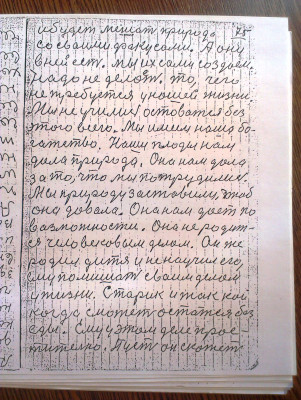 75
и будет мешать природа
со своими фокусами. А они
в ней есть. Мы их сами создаем.
надо не делать то, чего
не требуется у нашей жизни.
Мы не училис остоватся без
этого всего. Мы имеем наше бо-
гатство. Наши плоды нам
дала природа. Она нам дала
за то, что мы потрудилис.
Мы природу заставили, чтоб
она довала. Она нам дает по
возможности. Она не родит-
ся человековым делом. Он же
родил дитя и не научил его
ему помешать своим делом
у жизни. Старик и тот кой
когда сможет остатся без
еды. Ему у этом деле прос-
тително. Пуст он скажет